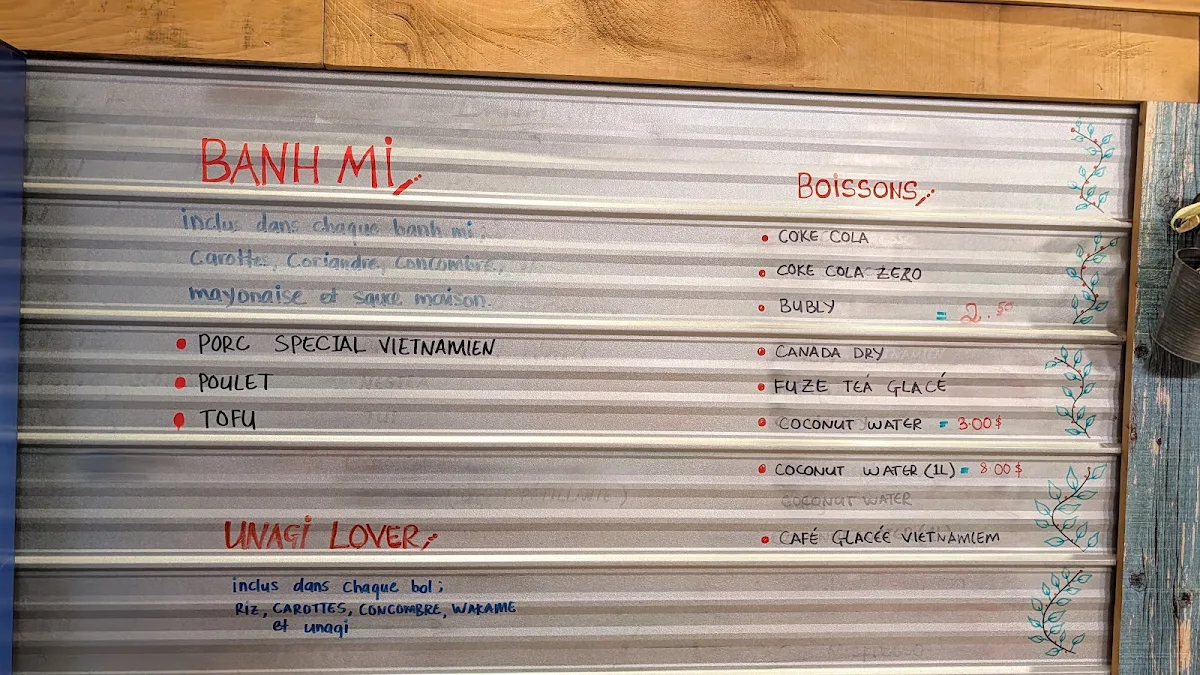 BANH MI
inclus dans chaque banh mi;
Carottes, Coriandre, Concombre,
mayonaise et sauce maison.
PORC SPECIAL VIETNAMIEN
POULET
TOFU
UNAGI LOVER
inclus dans chaque bol;
RIZ, CAROTTES, CONCOMBRE, WAKAME
et unagi
BOISSONS
COKE COLA
COKE COLA ZERO
BUBLY = 2.50
CANADA DRY
FUZE TEA GLACÉ
COCONUT WATER = 3.00$
COCONUT WATER (1L) = 8.00$
COCONUT WATER
CAFÉ GLACÉE VIETNAMIEM